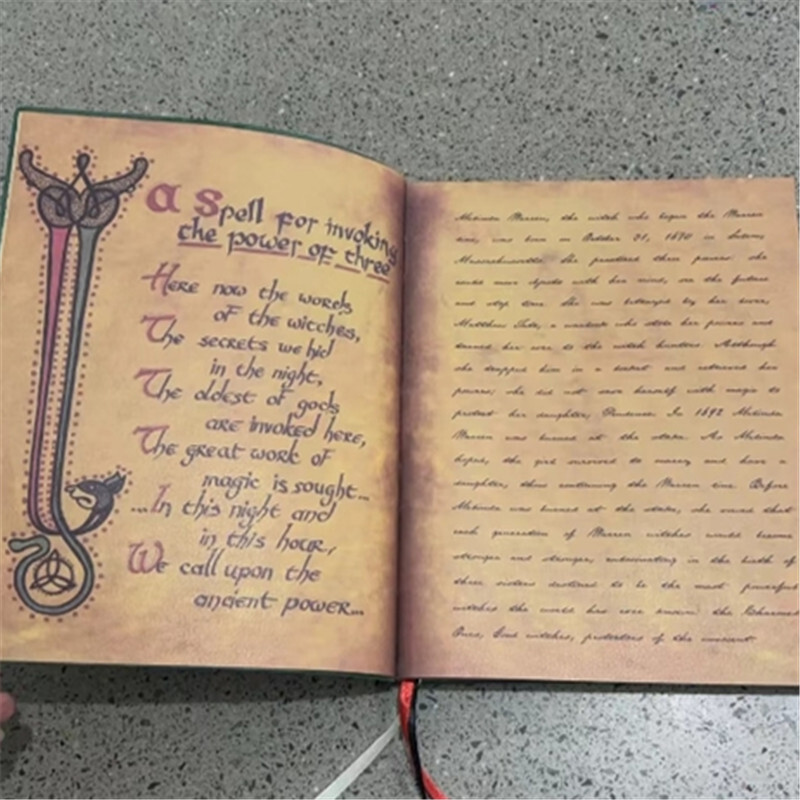 a Spell for invoking
the power of three
Here now the words
of the witches,
The secrets we hid
in the night,
The oldest of gods
are invoked here,
The great work of
magic is sought...
...In this night and
in this hour,
We call upon the
ancient power...
Melinda Warren, the witch who began the Warren
line, was born on October 31, 1670 in Salem,
Massachusetts. She practiced three powers she
could move objects with her mind, see the future
and stop time. She was betrayed by her lover,
Matthew Tate, a warlock who stole her powers and
turned her over to the witch hunters. Although
she trapped him in a locket and retrieved her
powers, she did not save herself with magic to
protect her daughter, Prudence. In 1692 Melinda
Warren was burned at the stake. As Melinda
hoped, the girl survived to marry and have a
daughter, thus continuing the Warren line. Before
Melinda was burned at the stake, she vowed that
each generation of Warren witches would become
stronger and stronger, culminating in the birth of
three sisters destined to be the most powerful
witches the world has ever known: the Charmed
Ones, Good witches, protectors of the innocent.